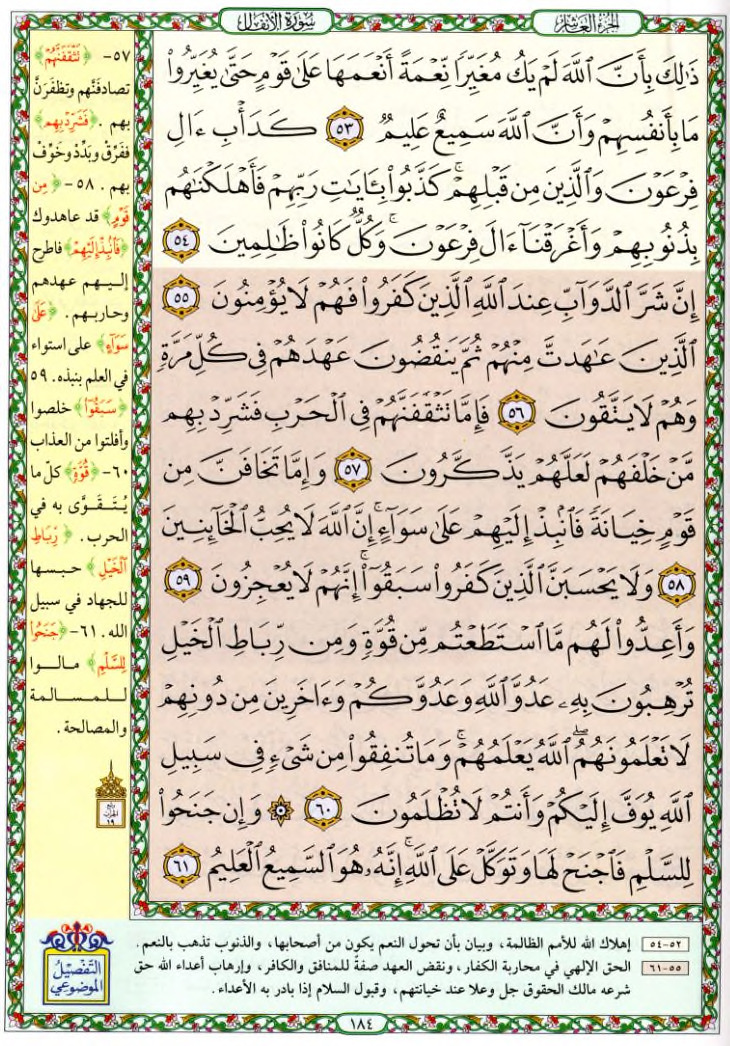 سُورَةُ الأَنفَالِ
الجُزْءُ العَاشِرُ
ذَٰلِكَ بِأَنَّ ٱللَّهَ لَمْ يَكُ مُغَيِّرًا نِّعْمَةً أَنْعَمَهَا عَلَىٰ قَوْمٍ حَتَّىٰ يُغَيِّرُوا۟
مَا بِأَنفُسِهِمْ وَأَنَّ ٱللَّهَ سَمِيعٌ عَلِيمٌ ٥٣ كَدَأْبِ ءَالِ
فِرْعَوْنَ وَٱلَّذِينَ مِن قَبْلِهِمْ ۚ كَذَّبُوا۟ بِـَٔايَٰتِ رَبِّهِمْ فَأَهْلَكْنَٰهُم
بِذُنُوبِهِمْ وَأَغْرَقْنَآ ءَالَ فِرْعَوْنَ ۚ وَكُلٌّ كَانُوا۟ ظَٰلِمِينَ ٥٤
إِنَّ شَرَّ ٱلدَّوَآبِّ عِندَ ٱللَّهِ ٱلَّذِينَ كَفَرُوا۟ فَهُمْ لَا يُؤْمِنُونَ ٥٥
ٱلَّذِينَ عَٰهَدتَّ مِنْهُمْ ثُمَّ يَنقُضُونَ عَهْدَهُمْ فِى كُلِّ مَرَّةٍ
وَهُمْ لَا يَتَّقُونَ ٥٦ فَإِمَّا تَثْقَفَنَّهُمْ فِى ٱلْحَرْبِ فَشَرِّدْ بِهِم
مَّنْ خَلْفَهُمْ لَعَلَّهُمْ يَذَّكَّرُونَ ٥٧ وَإِمَّا تَخَافَنَّ مِن
قَوْمٍ خِيَانَةً فَٱنۢبِذْ إِلَيْهِمْ عَلَىٰ سَوَآءٍ ۚ إِنَّ ٱللَّهَ لَا يُحِبُّ ٱلْخَآئِنِينَ
٥٨ وَلَا يَحْسَبَنَّ ٱلَّذِينَ كَفَرُوا۟ سَبَقُوٓا۟ ۚ إِنَّهُمْ لَا يُعْجِزُونَ ٥٩
وَأَعِدُّوا۟ لَهُم مَّا ٱسْتَطَعْتُم مِّن قُوَّةٍ وَمِن رِّبَاطِ ٱلْخَيْلِ
تُرْهِبُونَ بِهِۦ عَدُوَّ ٱللَّهِ وَعَدُوَّكُمْ وَءَاخَرِينَ مِن دُونِهِمْ
لَا تَعْلَمُونَهُمُ ٱللَّهُ يَعْلَمُهُمْ ۚ وَمَا تُنفِقُوا۟ مِن شَىْءٍ فِى سَبِيلِ
ٱللَّهِ يُوَفَّ إِلَيْكُمْ وَأَنتُمْ لَا تُظْلَمُونَ ٦٠ ۞ وَإِن جَنَحُوا۟
لِلسَّلْمِ فَٱجْنَحْ لَهَا وَتَوَكَّلْ عَلَى ٱللَّهِ ۚ إِنَّهُۥ هُوَ ٱلسَّمِيعُ ٱلْعَلِيمُ ٦١
٥٧- ﴿تَثْقَفَنَّهُمْ﴾
تصادفَنَّهم وتظفَرَنَّ
بهم . ﴿فَشَرِّدْ بِهِم﴾
ففَرِّقْ وبَدِّدْ وخَوِّفْ
بهم . ٥٨- ﴿مِن
قَوْمٍ﴾ قد عاهدوك
﴿فَٱنۢبِذْ إِلَيْهِمْ﴾ فاطرح
إليـهم عهدهم
وحاربـهم . ﴿عَلَىٰ
سَوَآءٍ﴾ على استواء
في العلم بنبذه. ٥٩
﴿سَبَقُوٓا۟﴾ خلصوا
وأفلتوا من العذاب
٦٠- ﴿قُوَّةٍ﴾ كلّ ما
يُـتَـقَـوَّى به في
الحرب . ﴿رِّبَاطِ
ٱلْخَيْلِ﴾ حبـسها
للجهاد في سبيل
الله . ٦١- ﴿جَنَحُوا۟
لِلسَّلْمِ﴾ مالــوا
للـمـسـالـمة
والمصالحة .
ربع
الحزب
١٩
التَّفْصِيلُ
المَوضُوعي
٥٢-٥٤ إهلاك الله للأمم الظالمة ، وبيان بأن تحول النعم يكون من أصحابها ، والذنوب تذهب بالنعم .
٥٥-٦١ الحق الإلهي في محاربة الكفار ، ونقض العهد صفةٌ للمنافق والكافر ، وإرهاب أعداء الله حق
شرعه مالك الحقوق جل وعلا عند خيانتهم ، وقبول السلام إذا بادر به الأعداء .
١٨٤